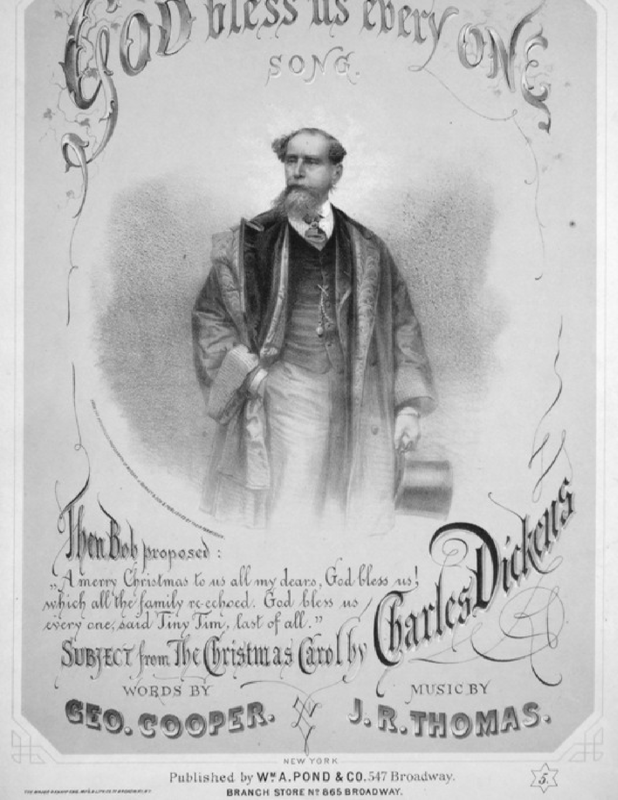 GOD bless us every ONE
SONG.
Then Bob proposed:
„A merry Christmas to us all my dears, God bless us!
which all the family re-echoed. God bless us
every one, said Tiny Tim, last of all."
SUBJECT from The Christmas Carol by
Charles Dickens
WORDS BY
GEO. COOPER.
MUSIC BY
J. R. THOMAS.
NEW YORK
Published by Wᴹ A. POND & CO. 547 Broadway.
BRANCH STORE Nº 865 BROADWAY.
5.